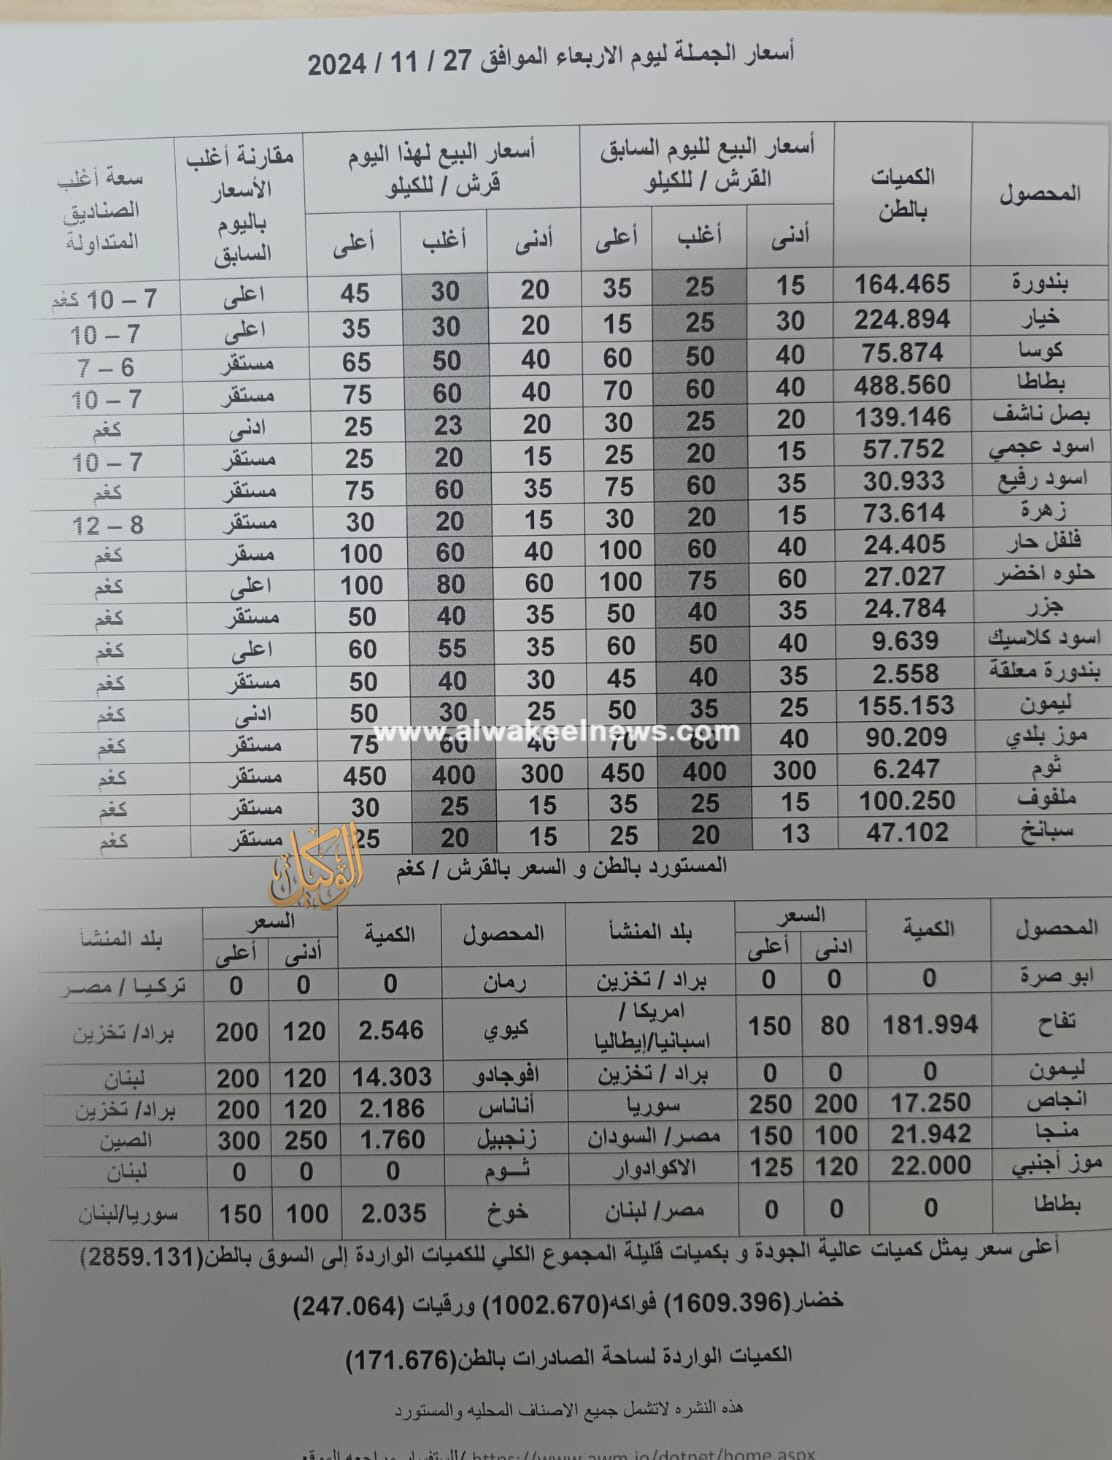 أسعار الجملة ليوم الاربعاء الموافق 27 / 11 / 2024
المحصول الكميات بالطن أسعار البيع لليوم السابق القرش / للكيلو أسعار البيع لهذا اليوم قرش / للكيلو مقارنة أغلب الأسعار باليوم السابق سعة أغلب الصناديق المتداولة
أدنى أغلب أعلى أدنى أغلب أعلى
بندورة 164.465 15 25 35 20 30 45 اعلى 7 – 10 كغم
خيار 224.894 30 25 15 20 30 35 اعلى 7 – 10
كوسا 75.874 40 50 60 40 50 65 مستقر 6 – 7
بطاطا 488.560 40 60 70 40 60 75 مستقر 7 – 10
بصل ناشف 139.146 20 25 30 20 23 25 ادنى كغم
اسود عجمي 57.752 15 20 25 15 20 25 مستقر 7 – 10
اسود رفيع 30.933 35 60 75 35 60 75 مستقر كغم
زهرة 73.614 15 20 30 15 20 30 مستقر 8 – 12
فلفل حار 24.405 40 60 100 40 60 100 مسقر كغم
حلوه اخضر 27.027 60 75 100 60 80 100 اعلى كغم
جزر 24.784 35 40 50 35 40 50 مستقر كغم
اسود كلاسيك 9.639 40 50 60 35 55 60 اعلى كغم
بندورة معلقة 2.558 35 40 45 30 40 50 مستقر كغم
ليمون 155.153 25 35 50 25 30 50 ادنى كغم
www.alwakeelnews.com
موز بلدي 90.209 40 60 70 40 60 75 مستقر كغم
ثوم 6.247 300 400 450 300 400 450 مستقر كغم
ملفوف 100.250 15 25 35 15 25 30 مستقر كغم
سبانخ 47.102 13 20 25 15 20 25 مستقر كغم
الوكيل
المستورد بالطن و السعر بالقرش / كغم
المحصول الكمية السعر بلد المنشأ المحصول الكمية السعر بلد المنشأ
ادنى أعلى أدنى أعلى
ابو صرة 0 0 0 براد / تخزين رمان 0 0 0 تركيا / مصر
تفاح 181.994 80 150 امريكا / اسبانيا/إيطاليا كيوي 2.546 120 200 براد/ تخزين
ليمون 0 0 0 براد / تخزين افوجادو 14.303 120 200 لبنان
انجاص 17.250 200 250 سوريا أناناس 2.186 120 200 براد/ تخزين
منجا 21.942 100 150 مصر/ السودان زنجبيل 1.760 250 300 الصين
موز أجنبي 22.000 120 125 الاكوادوار ثوم 0 0 0 لبنان
بطاطا 0 0 0 مصر/ لبنان خوخ 2.035 100 150 سوريا/لبنان
أعلى سعر يمثل كميات عالية الجودة و بكميات قليلة المجموع الكلي للكميات الواردة إلى السوق بالطن(2859.131)
خضار(1609.396) فواكه(1002.670) ورقيات (247.064)
الكميات الواردة لساحة الصادرات بالطن(171.676)
هذه النشره لاتشمل جميع الاصناف المحليه والمستورد
https://www.awm.jo/dotnet/home.aspx